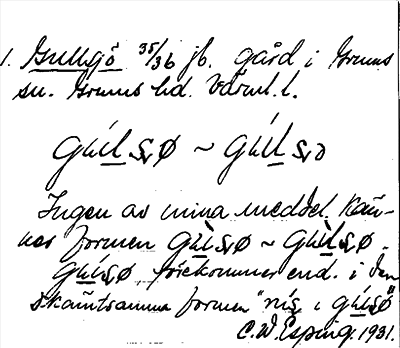 1. Gullsjö 35/36 jb. gård i Grums
sn. Grums hd. Värml. l.
gúl̲sø ~ gúl̲sɔ
Ingen av mina meddel. kän-
ner formen gùl̲sø ~ gùl̲sø.
gúl̲sø förekommer end. i den
skämtsamma formen "nis i gúl̲sø"
C.W. Esping. 1931.